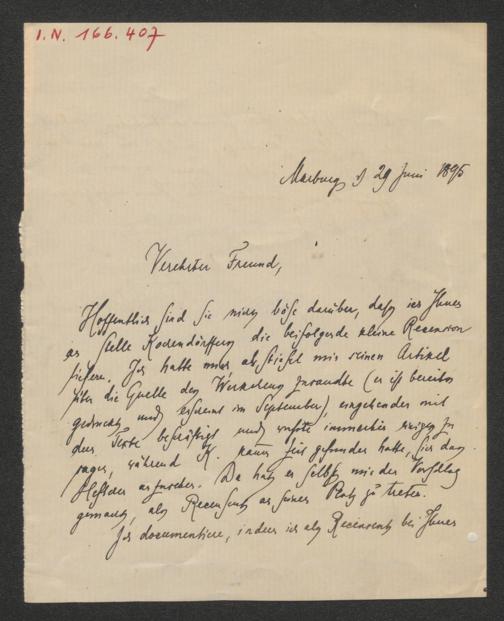 I.N. 166.407
Marburg d 29 Juni 1895
Verehrter Freund,
Hoffentlich sind Sie nicht böse darüber, dass ich Ihnen
an Stelle Kochendörffers die beifolgende kleine Recension
liefere. Ich hatte mich, als er mir seinen Artikel
über die Quelle des zusandte (er ist bereits
gedruckt und erscheint im September), eingehender mit
dem Texte beschäftigt und wusste immerhin einiges zu
sagen, während K. kaum Zeit gefunden hatte, sich das
Heftchen anzusehen. Da hat er selbst mir den Vorschlag
gemacht, als Recensent an seinen Platz zu treten.
Ich documentiere, indem ich als Recensent bei Ihnen